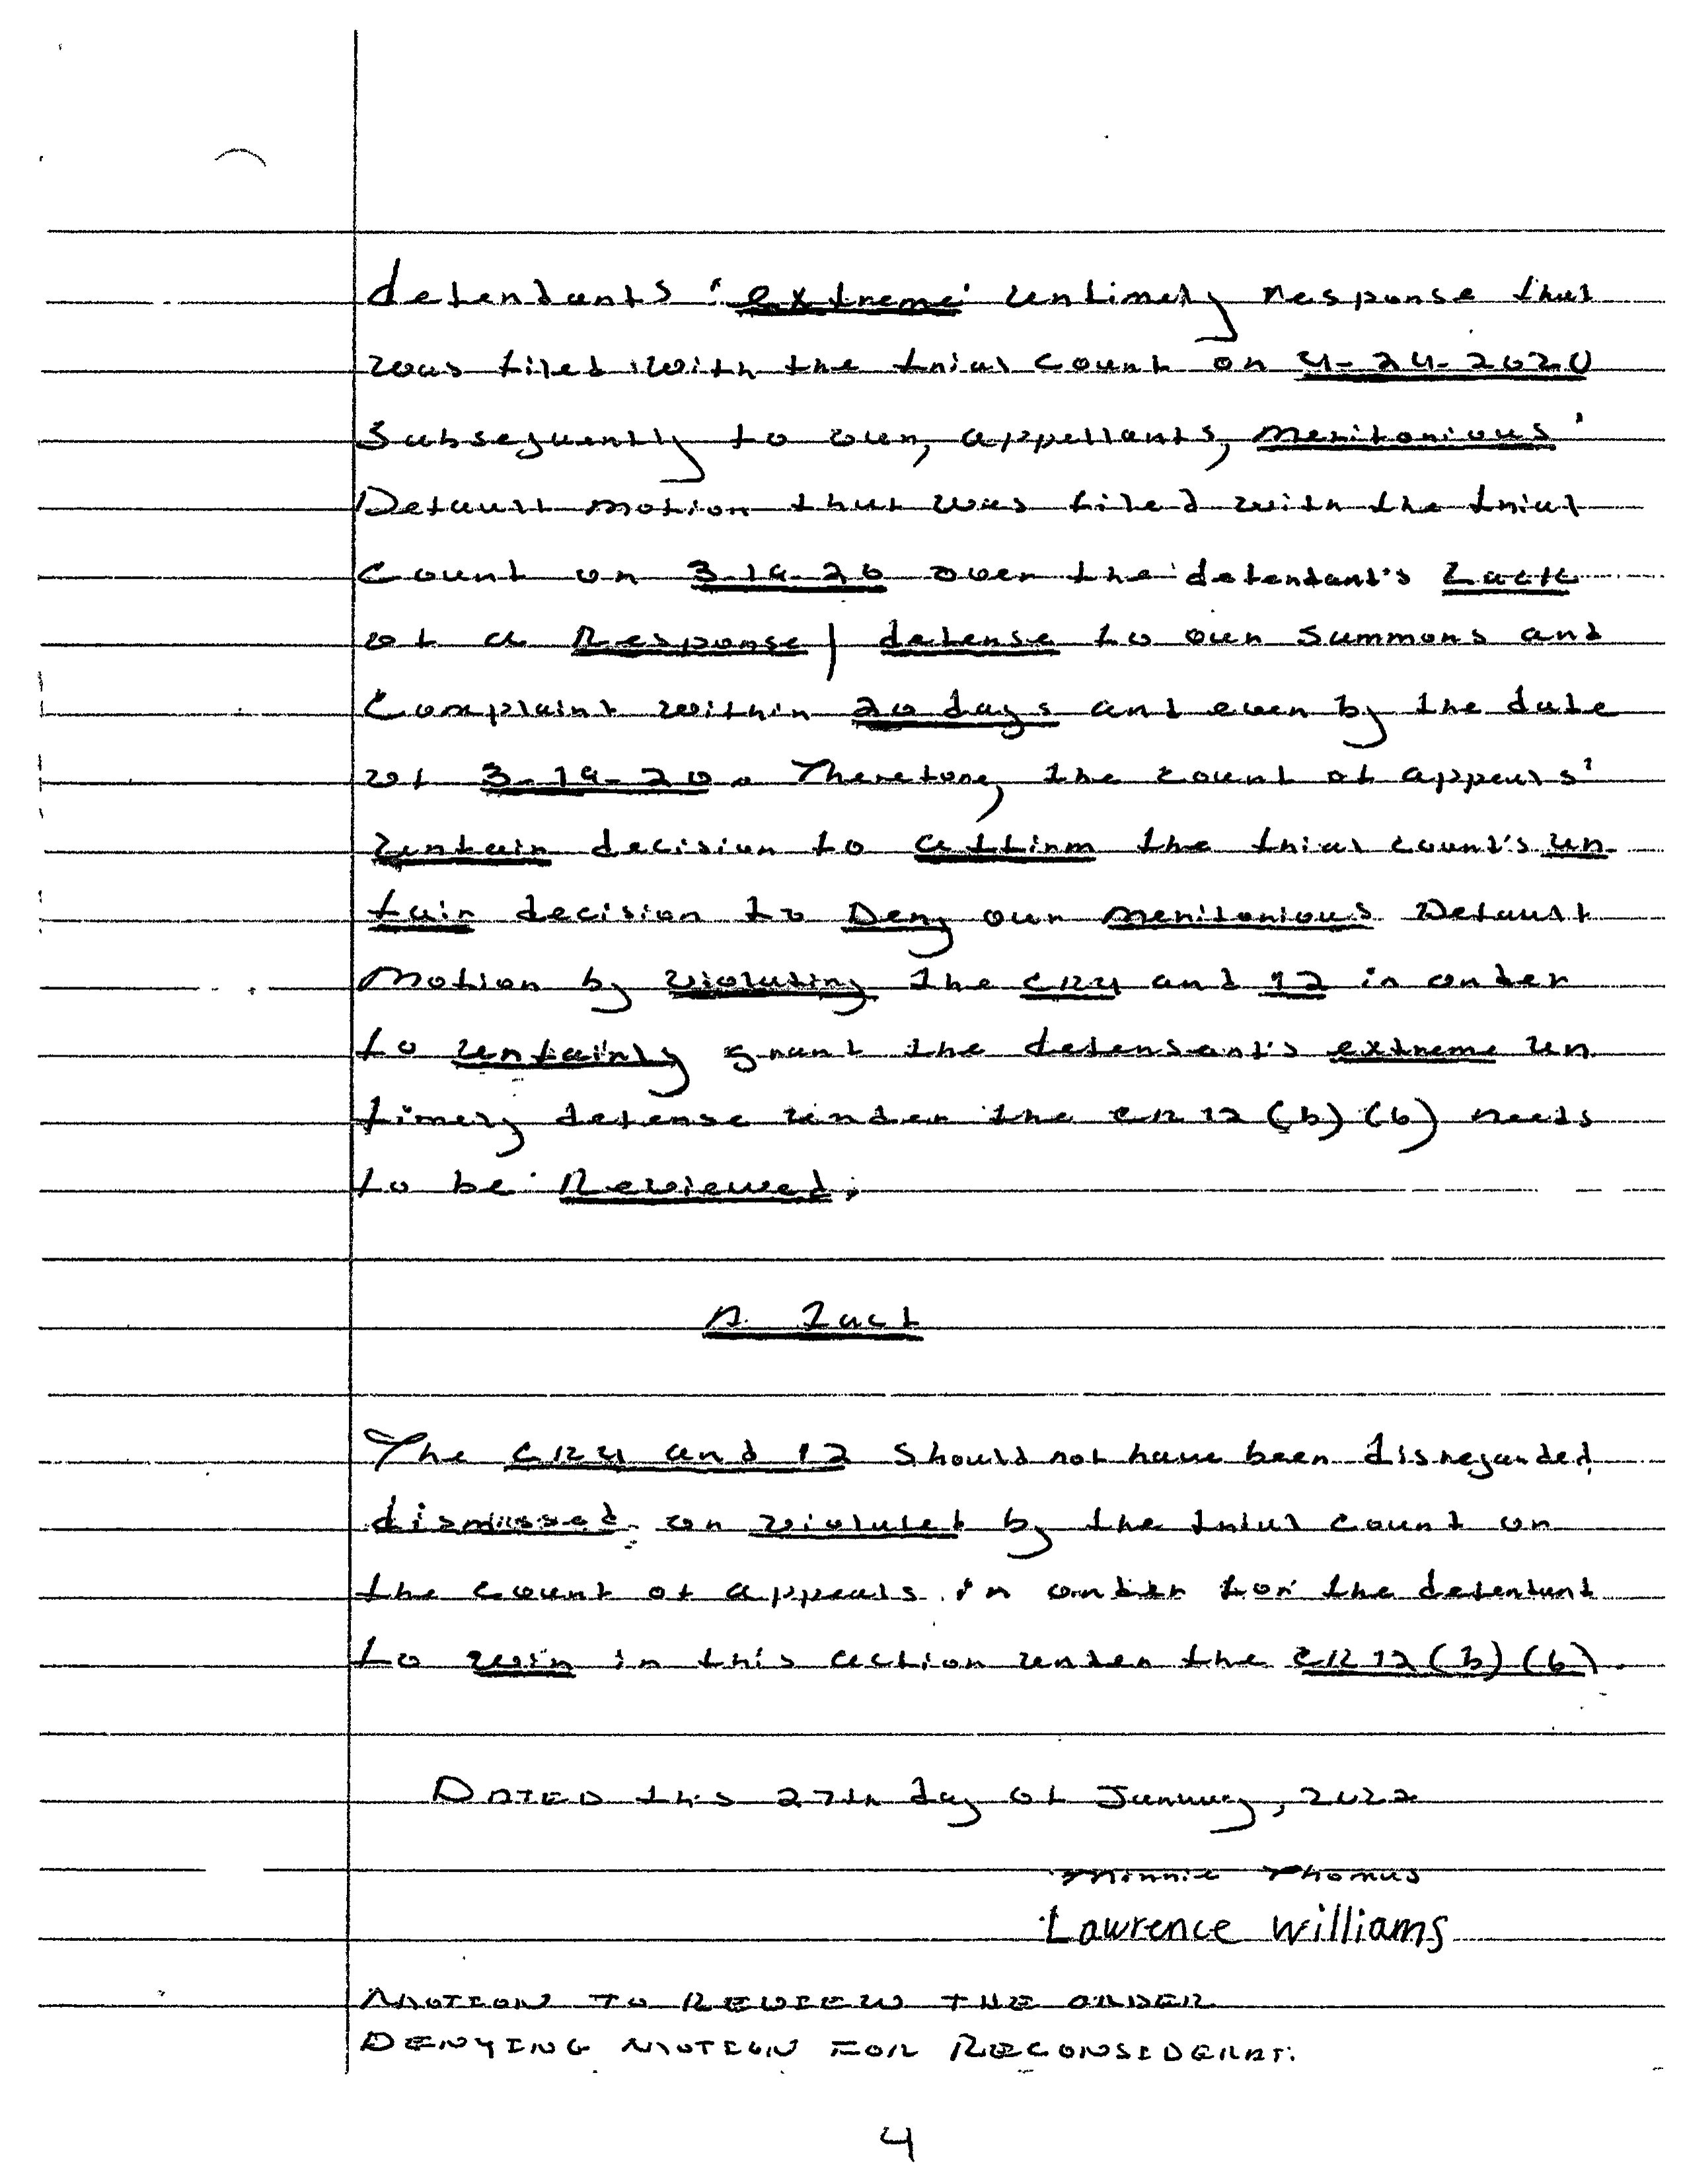 defendants 'extreme' untimely response that
was filed with the trial court on 4-24-2020
subsequently to our, appellants, meritorious'
Default motion that was filed with the trial
court on 3-19-20 over the defendant's Lack
of a Response/defense to our summons and
Complaint within 20 days and even by the date
of 3-19-20. Therefore, the court of appeals'
unfair decision to affirm the trial court's un
fair decision to Deny our meritorious Default
Motion by violating the CR4 and 12 in order
to unfairly grant the defensant's extreme un
timely defense under the CR 12 (b) (6) needs
to be Reviewed.
A Fact
The CR4 and 12 should not have been disregarded
dismissed or violated by the trial court or
the court of appeals in order for the defendant
to win in this action under the CR 12 (b) (6).
DATED this 27th day of January, 2022
Minnie Thomas
Lawrence Williams
MOTION TO REVIEW THE ORDER
DENYING MOTION FOR RECONSIDERAT.
4